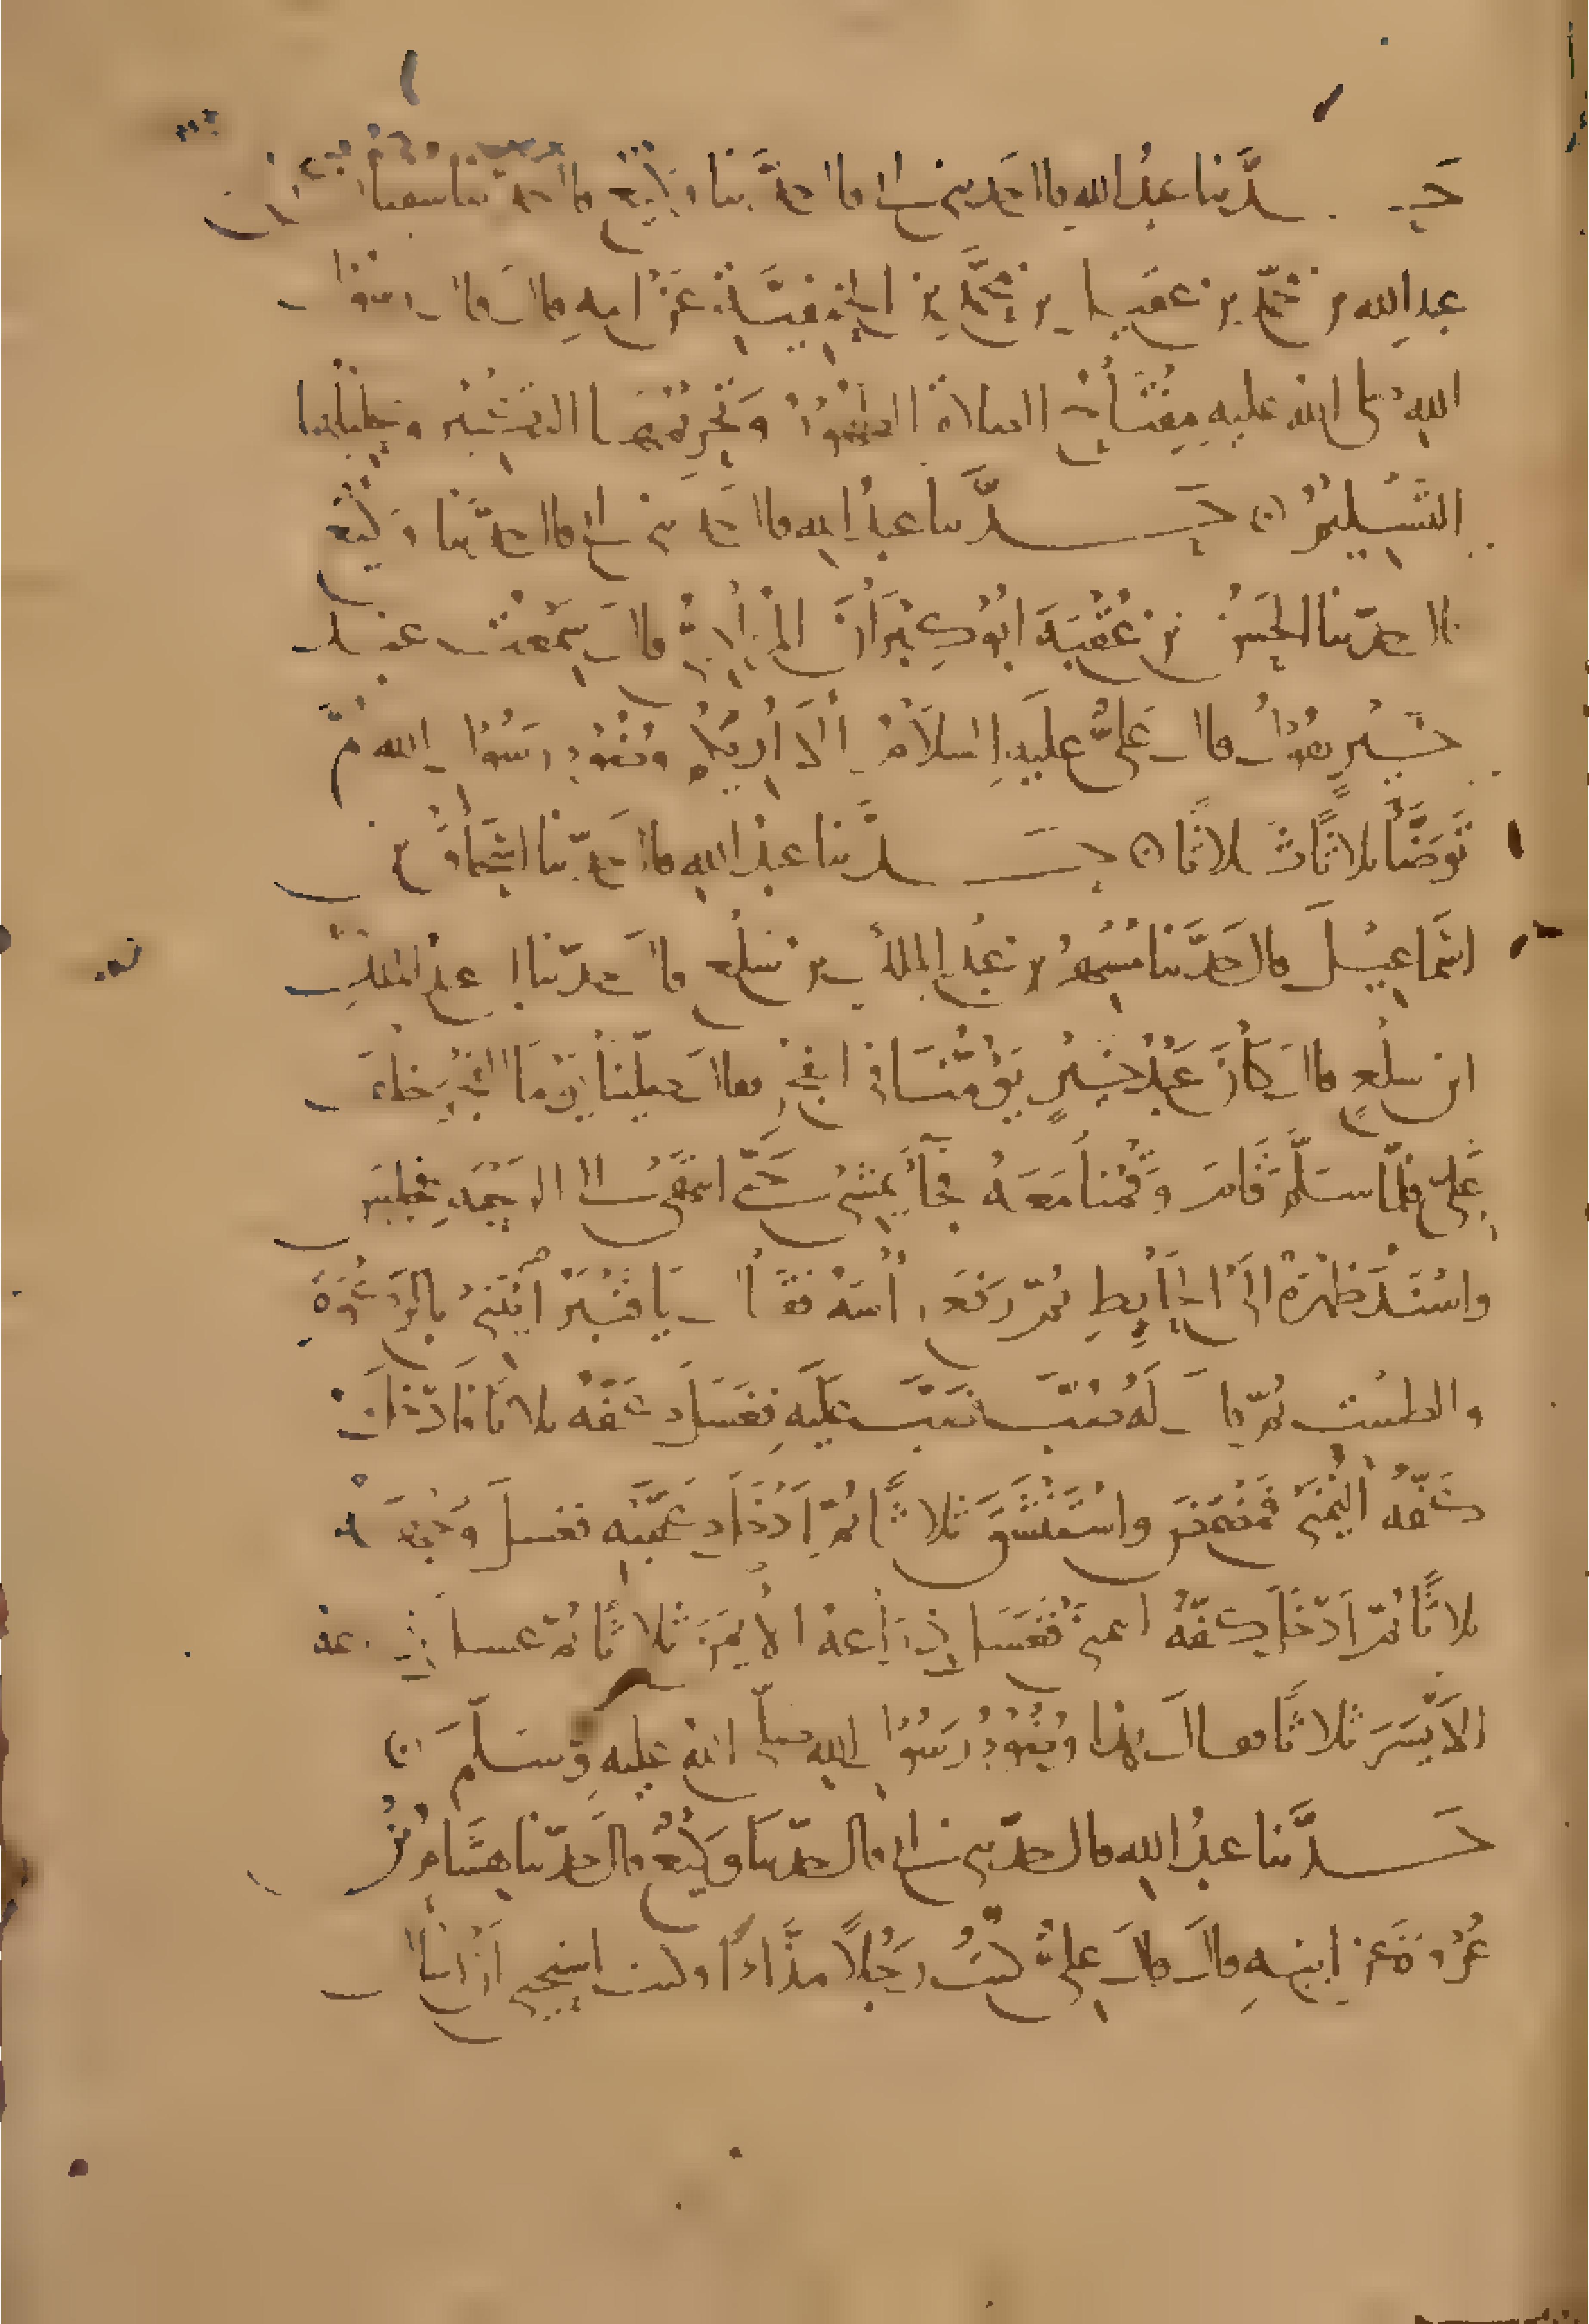 حدّثنا عبدُ الله قال حدثني أبي قال حدَّثنا وكيع قال حدثنا سفيان عن
عبدِ الله بن محمّد بن عقيل بن محمَّد بن الحنفيَّة عن ابيهِ قال قال رسول
اللهِ صلى الله عليهِ مِفتَاح الصلاة الطهُورُ وَتحريمُهَا التكبير وتحليلها
التَّسْليمُ حدَّثنا عبدُ الله قال حدثني أبي قال حدَّثنا وكيع
قال حدّثنا الحَسَنُ بن عُقْبَة ابُو كِبْرَانَ المُرَادِيُّ قال سَمِعْتُ عبد
خَيْرٍ يقولُ قال عَليٌّ عليهِ السلاَمُ أَلاَ أُرِيكُمْ وضُوءَ رسُول الله ثمّ
تَوَضَّأَ ثلاثًا ثَلاثًا حدَّثنا عبدُ الله قال حدّثنا اسحَاقُ بن
اسْمَاعِيْلَ قال حَدَّثنا مُسْهِرُ بن عبد الملك بن سَلْعٍ قال حدّثنا أبي عبد الملك
ابن سلْعٍ قال كَانَ عَبْدُ خَيْرٍ يَؤُمُّنَا في الفجر فقال صلّينا يَوْمًا الفَجْرَ خَلْفَ
عَليٍّ فلمّا سَلَّمَ قَامَ وَقُمْنا مَعَهُ فجَاءَ يَمشي حَتَّى انتهَى الى الرحْبَةِ فجلسَ
واسْنَدَ ظهْرَهُ الَى الحَائِطِ ثمّ رَفعَ رَأسَهُ فقالَ يَا قَنْبَرُ ائْتِني بالرَّكْوَةِ
والطسْتِ ثُمّ قالَ لَهُ صُبَّ فصَبَّ عَلَيهِ فغَسَلَ كَفّهُ ثلاثًا فادْخَلَ
كَفّهُ اليُمْنَى فمَضْمَضَ واسْتَنْشَقَ ثلاثًا ثُمّ ادْخَلَ كَفَّيْهِ فغسل وَجْهَهُ
ثلاثًا ثُمّ ادْخَلَ كَفّهُ اليمنَى فَغَسَلَ ذِرَاعهُ الأيْمَنَ ثلاثًا ثُمّ غسل ذراعه
الأيْسَرَ ثلاثًا فقال هٰذا وُضُوءُ رَسُول اللهِ صلّى الله عليهِ وسَلَّمَ
حدَّثنا عبدُ الله قال حدّثني أبي قال حدّثنَا وَكيْعٌ قال حدّثنا هِشَامُ بنُ
عُرْوَةَ عن ابيهِ قالَ قالَ عليٌّ كنتُ رَجُلاً مذَّاءً وكنت استحيي أن أسأل